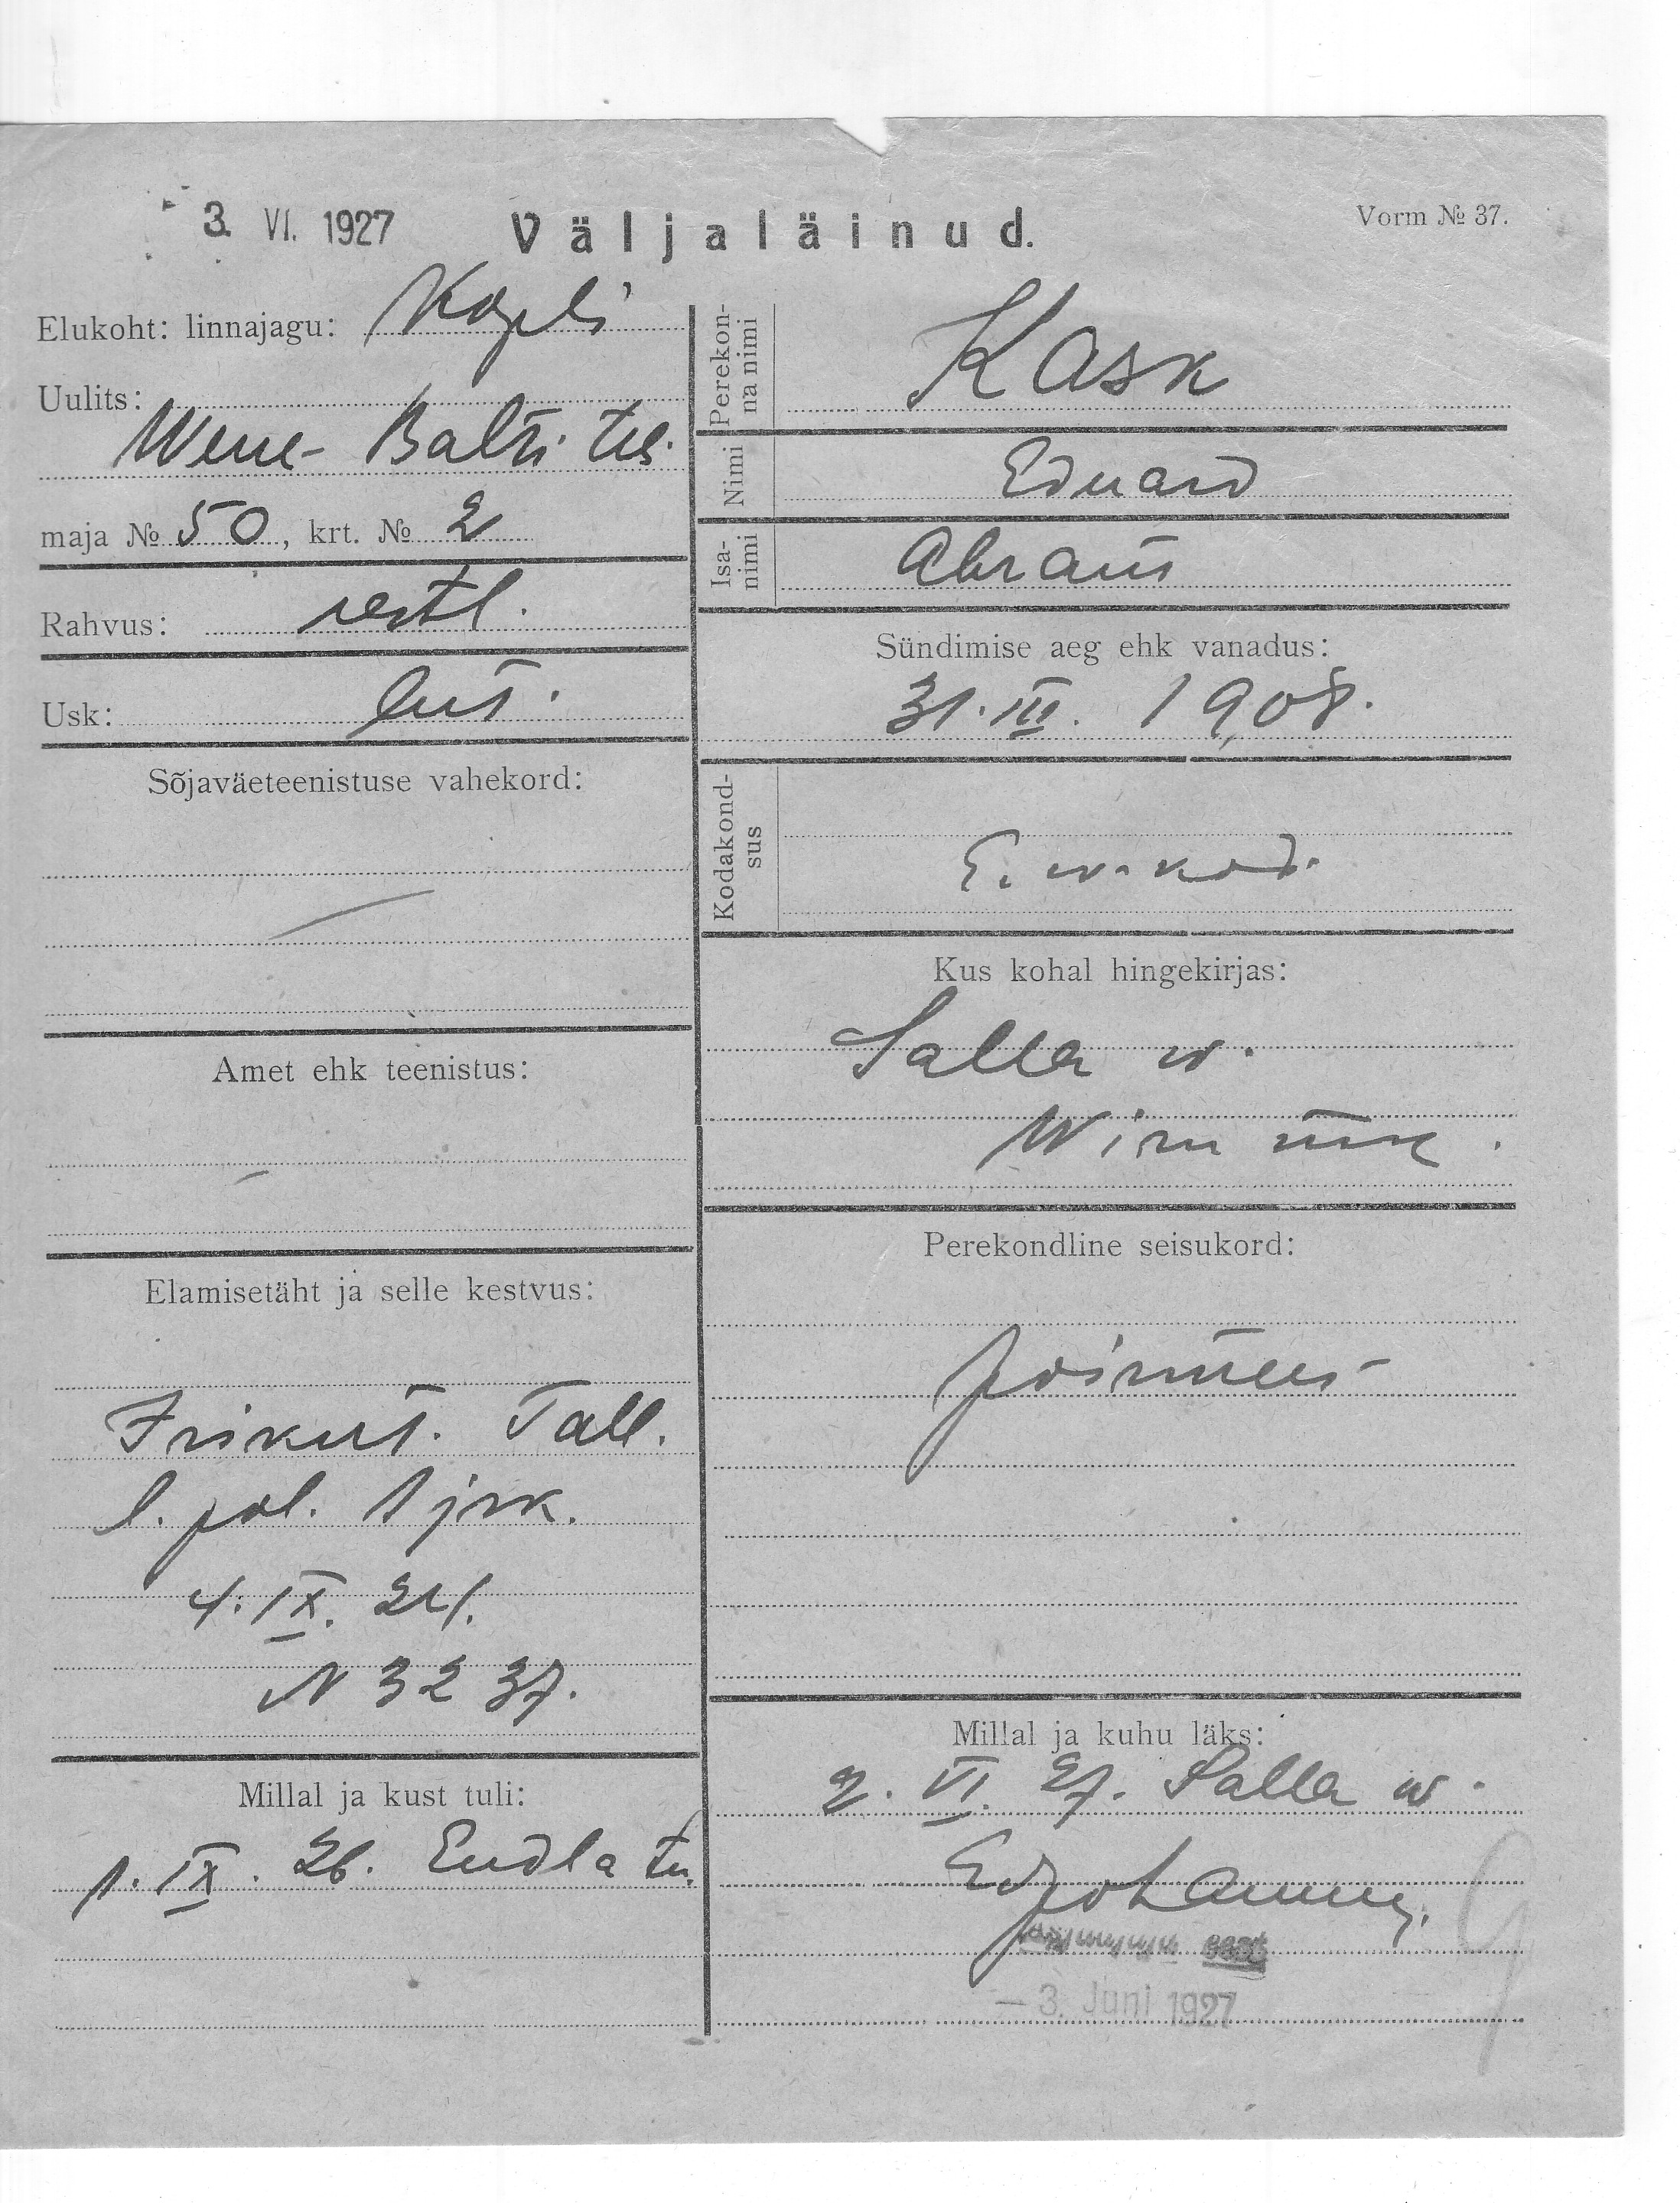 3. VI. 1927
Väljaläinud.
Vorm № 37.
Elukoht: linnajagu: Kopli
Uulits:
Wene-Balti teh.
maja № 50, krt. № 2
Rahvus: eestl.
Usk: lut.
Sõjaväeteenistuse vahekord:
—
Amet ehk teenistus:
—
Elamisetäht ja selle kestvus:
Isikut. Tall.
l. pol. 1 jsk.
4. IX. 24.
N 3237.
Millal ja kust tuli:
1. IX. 26. Endla tn.
Perekon-
na nimi
Kask
Nimi Eduard
Isa-
nimi
Abram
Sündimise aeg ehk vanadus:
31. III. 1908.
Kodakond-
sus
E. w. kod.
Kus kohal hingekirjas:
Salla w.
Wiru mk.
Perekondline seisukord:
poismees
Millal ja kuhu läks:
2. VI. 27. Salla w.
— 3. Juni 1927